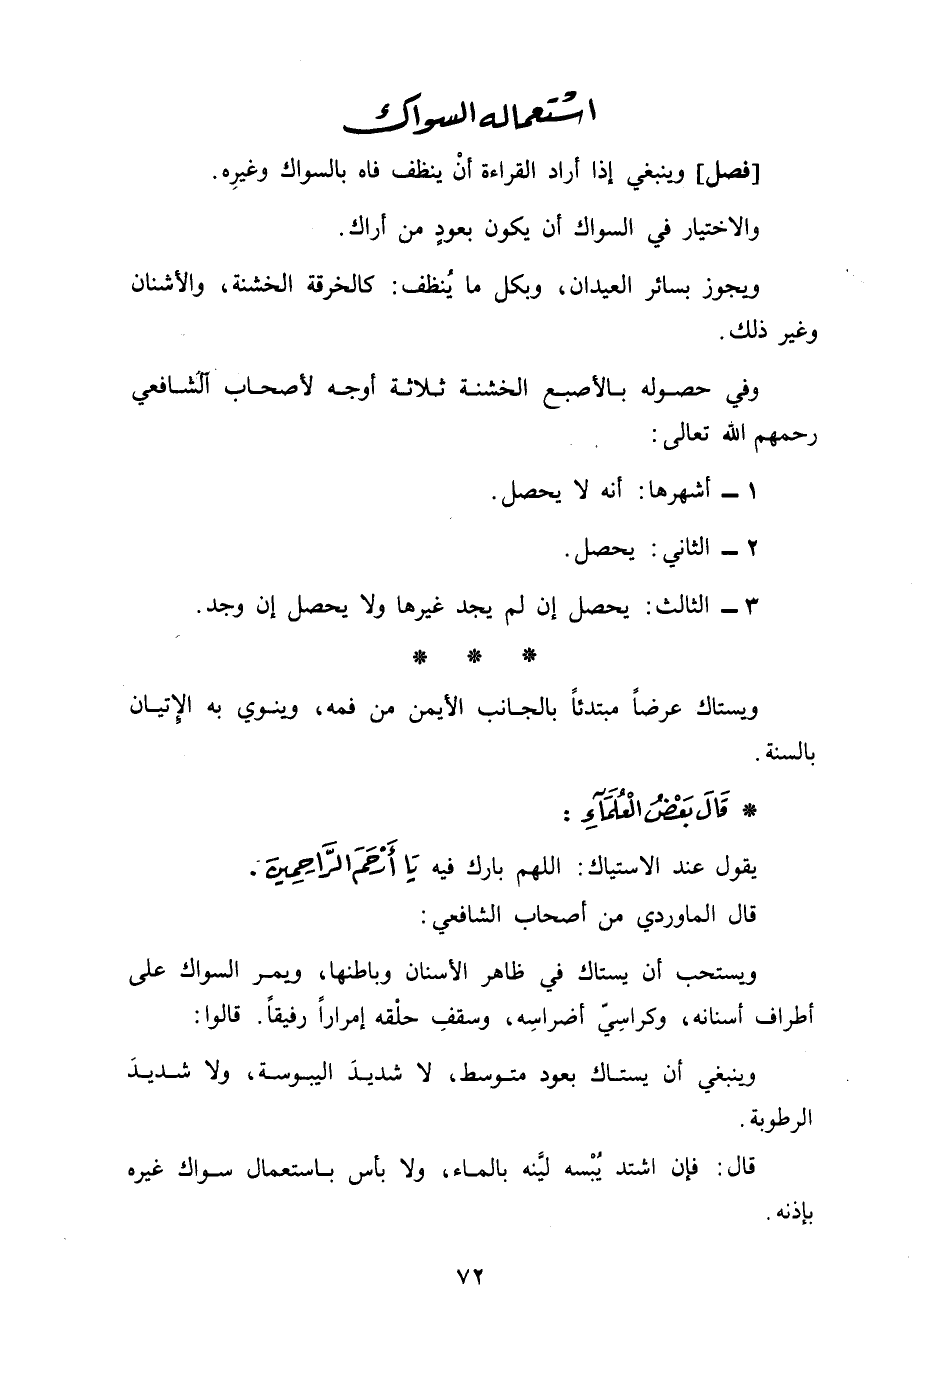 استعمال السواك
[فصل] وينبغي إذا أراد القراءة أنْ ينظف فاه بالسواك وغيرِه.
والاختيار في السواك أن يكون بعودٍ من أراك.
ويجوز بسائر العيدان، وبكل ما يُنظف: كالخرقة الخشنة، والأشنان
وغير ذلك.
وفي حصوله بالأصبع الخشنة ثلاثة أوجه لأصحاب الشافعي
رحمهم الله تعالى:
١ ــ أشهرها: أنه لا يحصل.
٢ ــ الثاني: يحصل.
٣ ــ الثالث: يحصل إن لم يجد غيرها ولا يحصل إن وجد.
* * *
ويستاك عرضاً مبتدئاً بالجانب الأيمن من فمه، وينوي به الإِتيان
بالسنة.
* قَالَ بَعْضُ الْعُلَمَآءِ:
يقول عند الاستياك: اللهم بارك فيه يَا أَرْحَمَ الرَّاحِمِينَ.
قال الماوردي من أصحاب الشافعي:
ويستحب أن يستاك في ظاهر الأسنان وباطنها، ويمر السواك على
أطراف أسنانه، وكراسِيّ أضراسِه، وسقفِ حلْقه إمراراً رفيقاً. قالوا:
وينبغي أن يستاك بعود متوسط، لا شديدَ اليبوسة، ولا شديدَ
الرطوبة.
قال: فإن اشتد يُبْسه ليَّنه بالماء، ولا بأس باستعمال سواك غيره
بإذنه.
٧٢